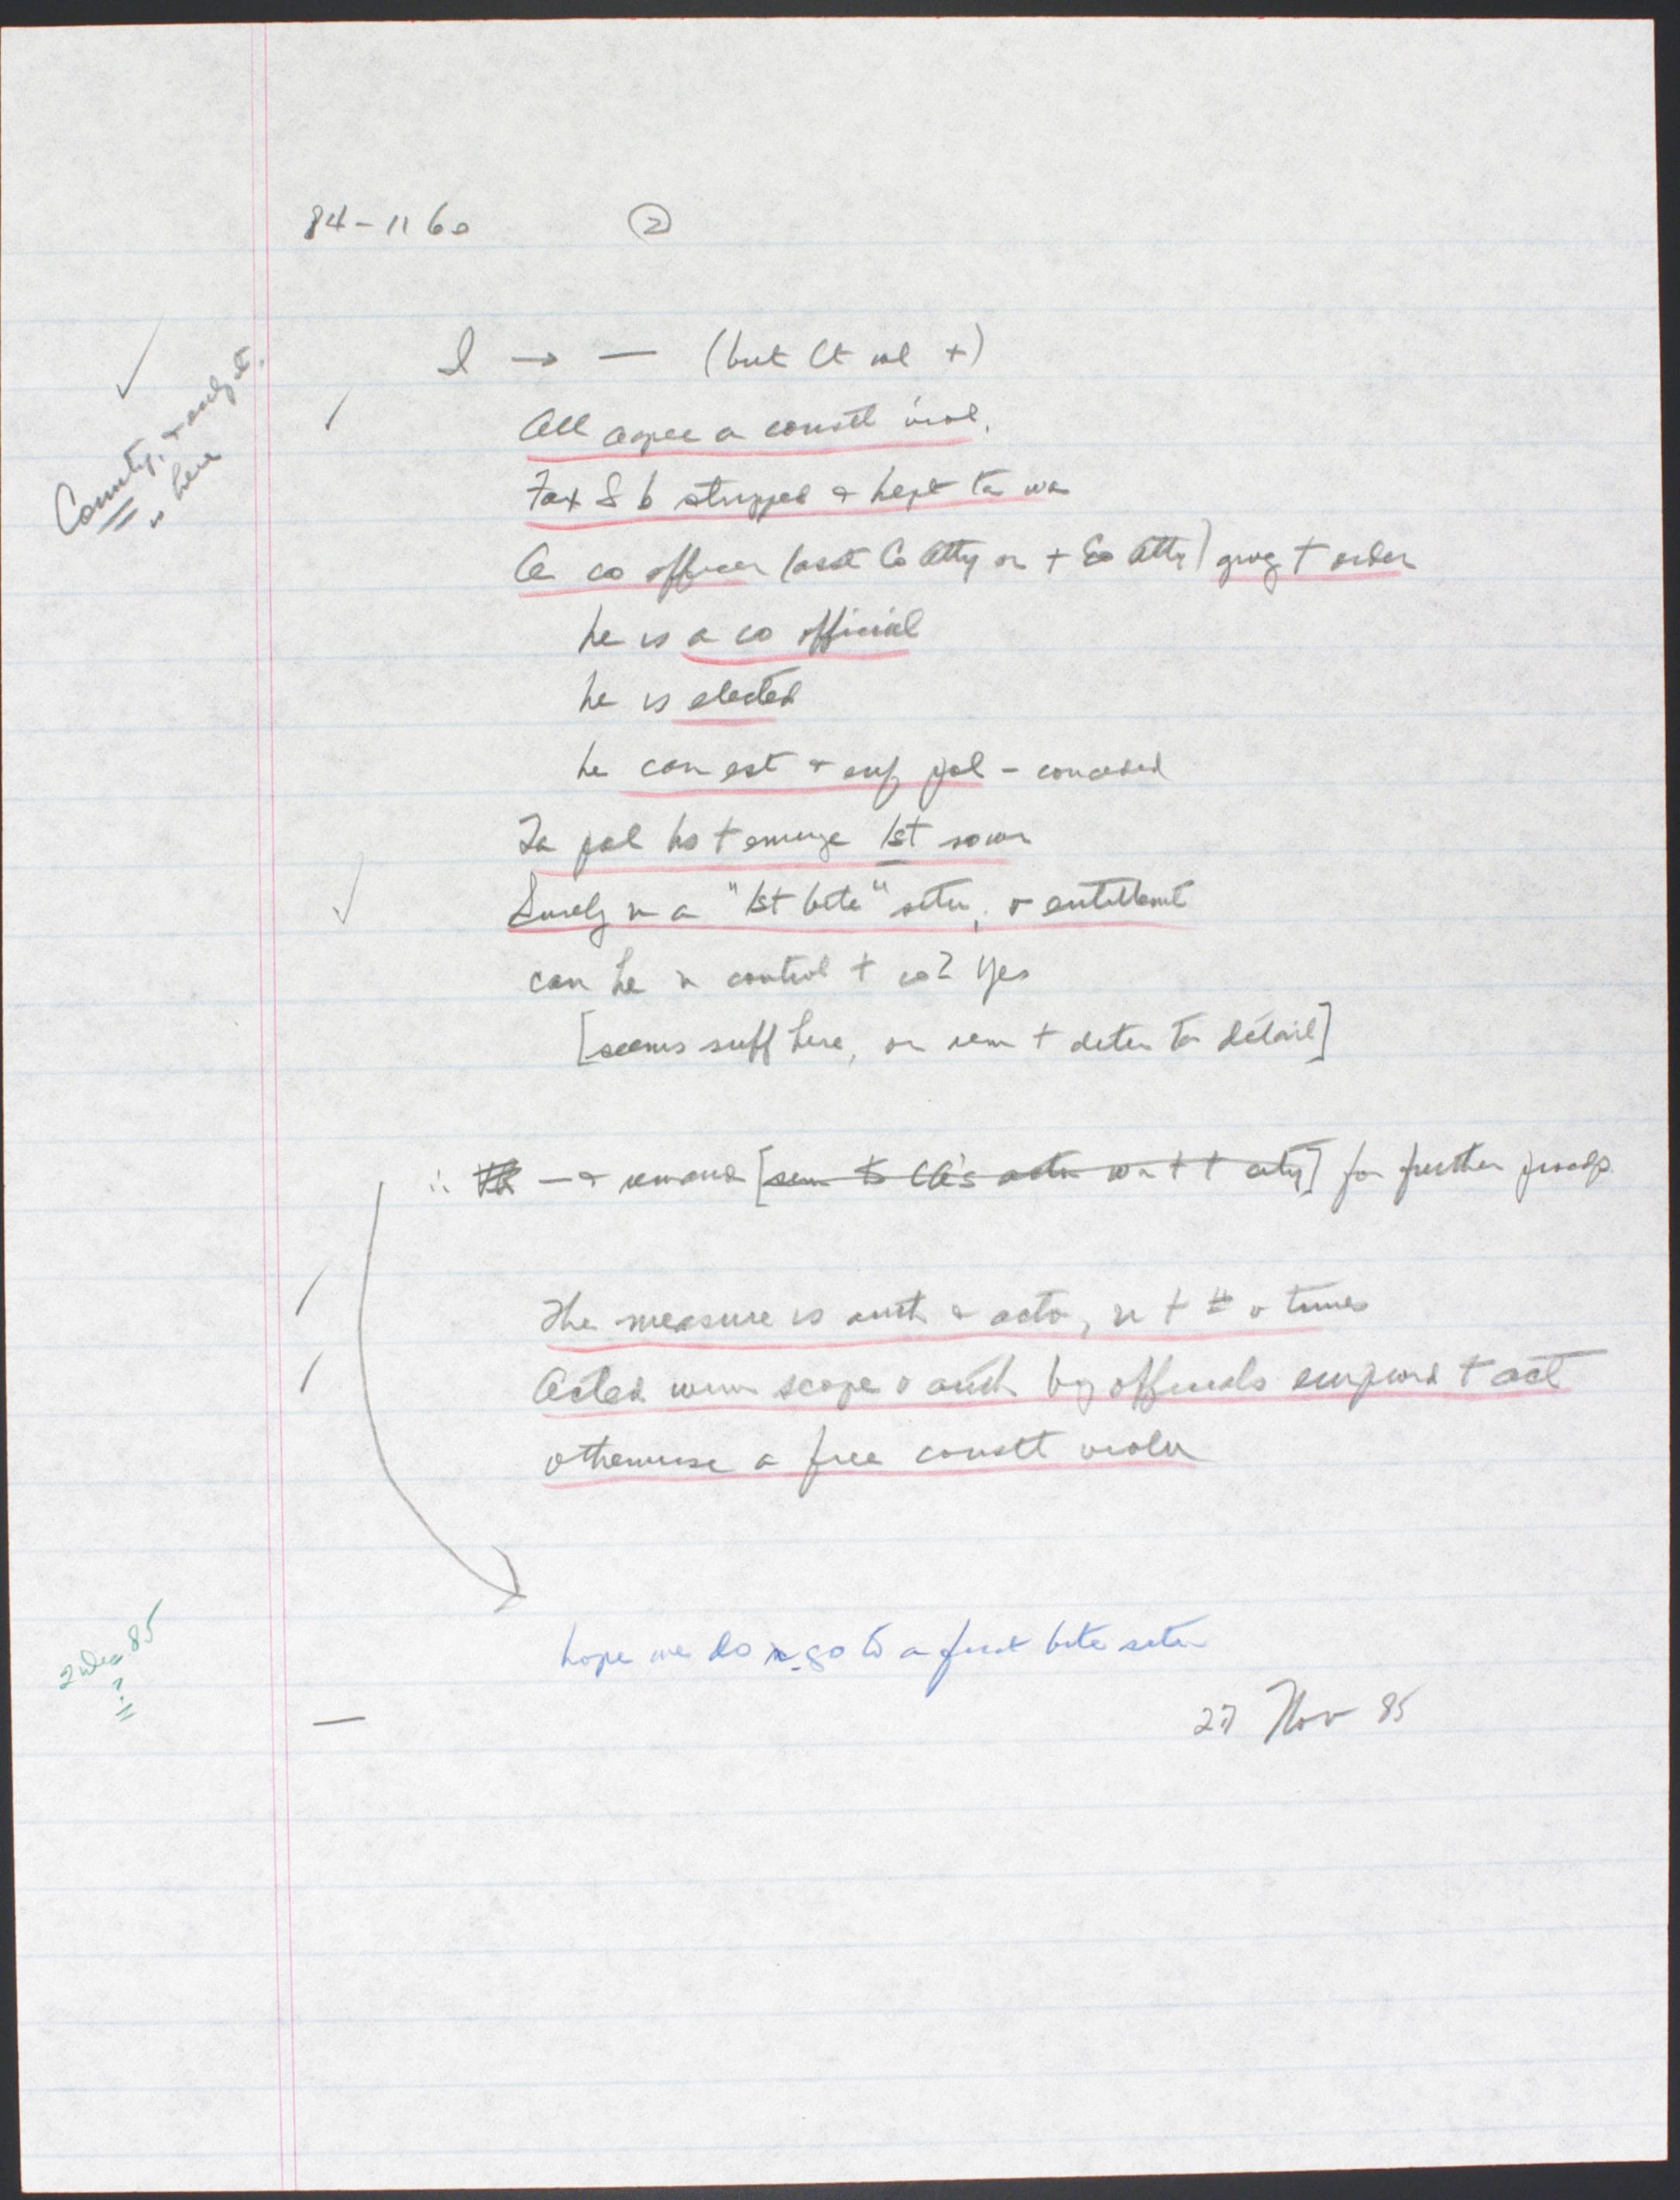 84-1160 ②
I → — (but Ct wl +)
✓
County, + only it.
is here
All agree a constl viol.
Fax S b stripped + kept ta wa
A co officer (asst Co Atty or + Co Atty) givg t order
he is a co official
he is elected
he can est + enf pol - conceded
Ta pol hs t emerge 1st somr
Surely n a "1st bite" situ. o entitlemt
can he n control t co? Yes
[seems suff here, or rem t deter ta detail]
∴ — + remand [rem to CA's actn wr t t city] for further procdgs.
The measure is auth + acto, n t # o times
Acted win scope o auth by officials empwrd t act
otherwise a free constl violn
hope we do n go to a first bite situ
2 Dec 85
?
27 Nov 85